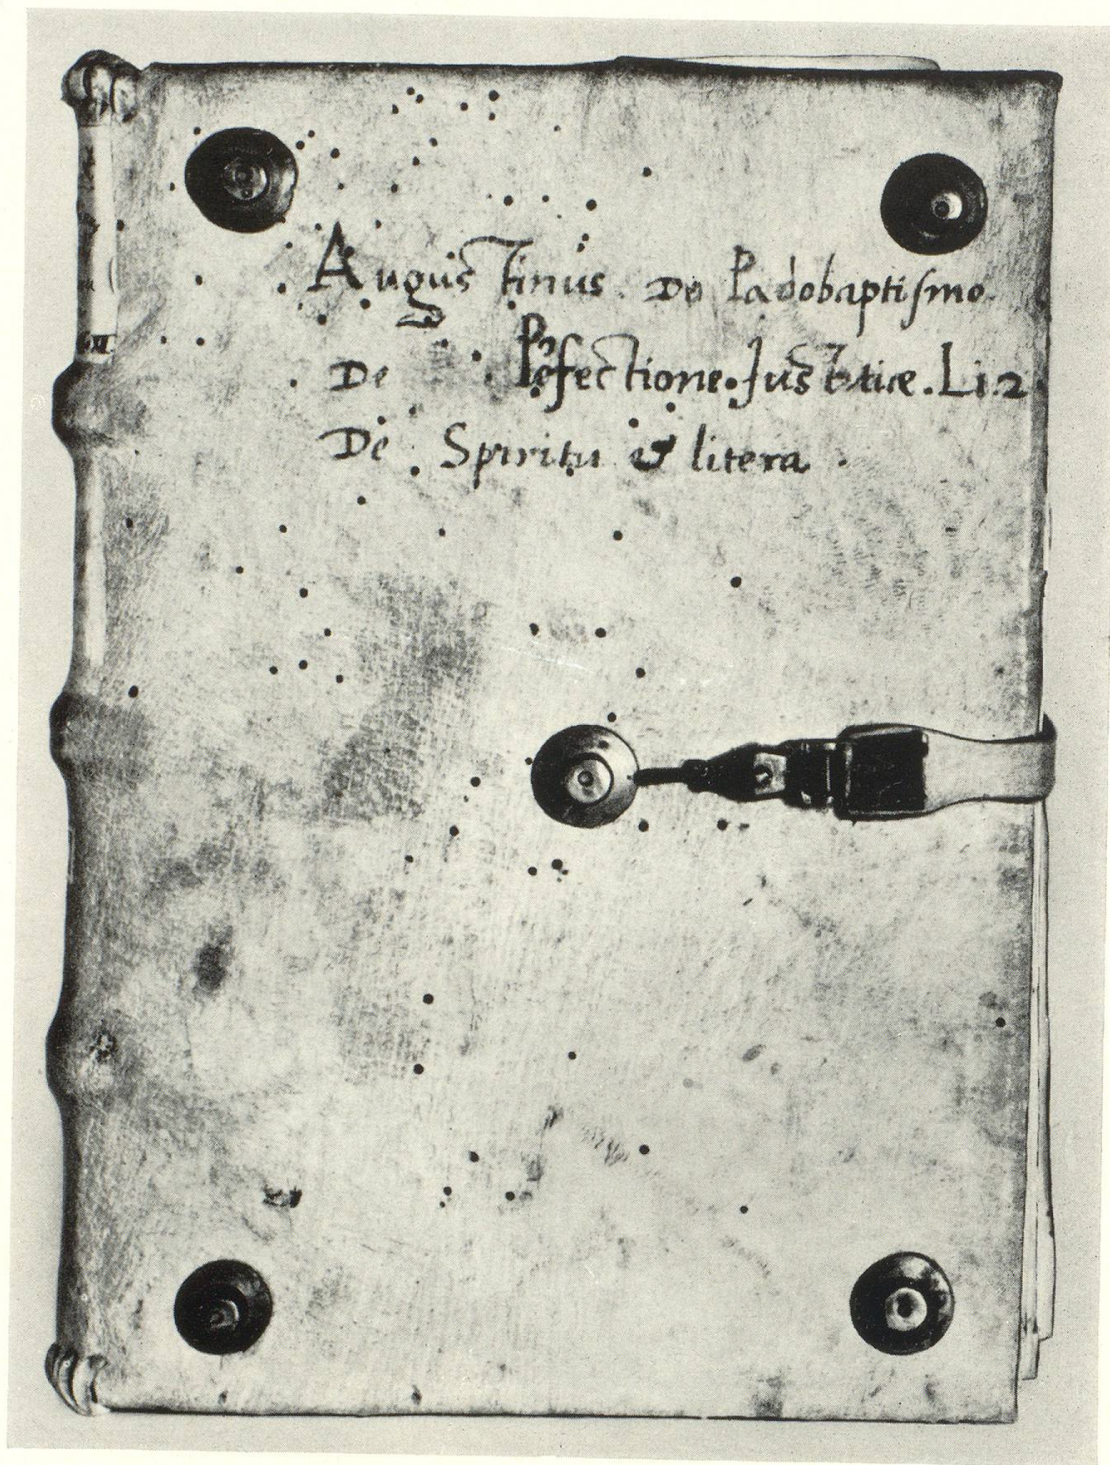 Augustinus. De Pædobaptismo.
De Pefectione. Justitiæ. Li. 2
De Spiritu & litera.